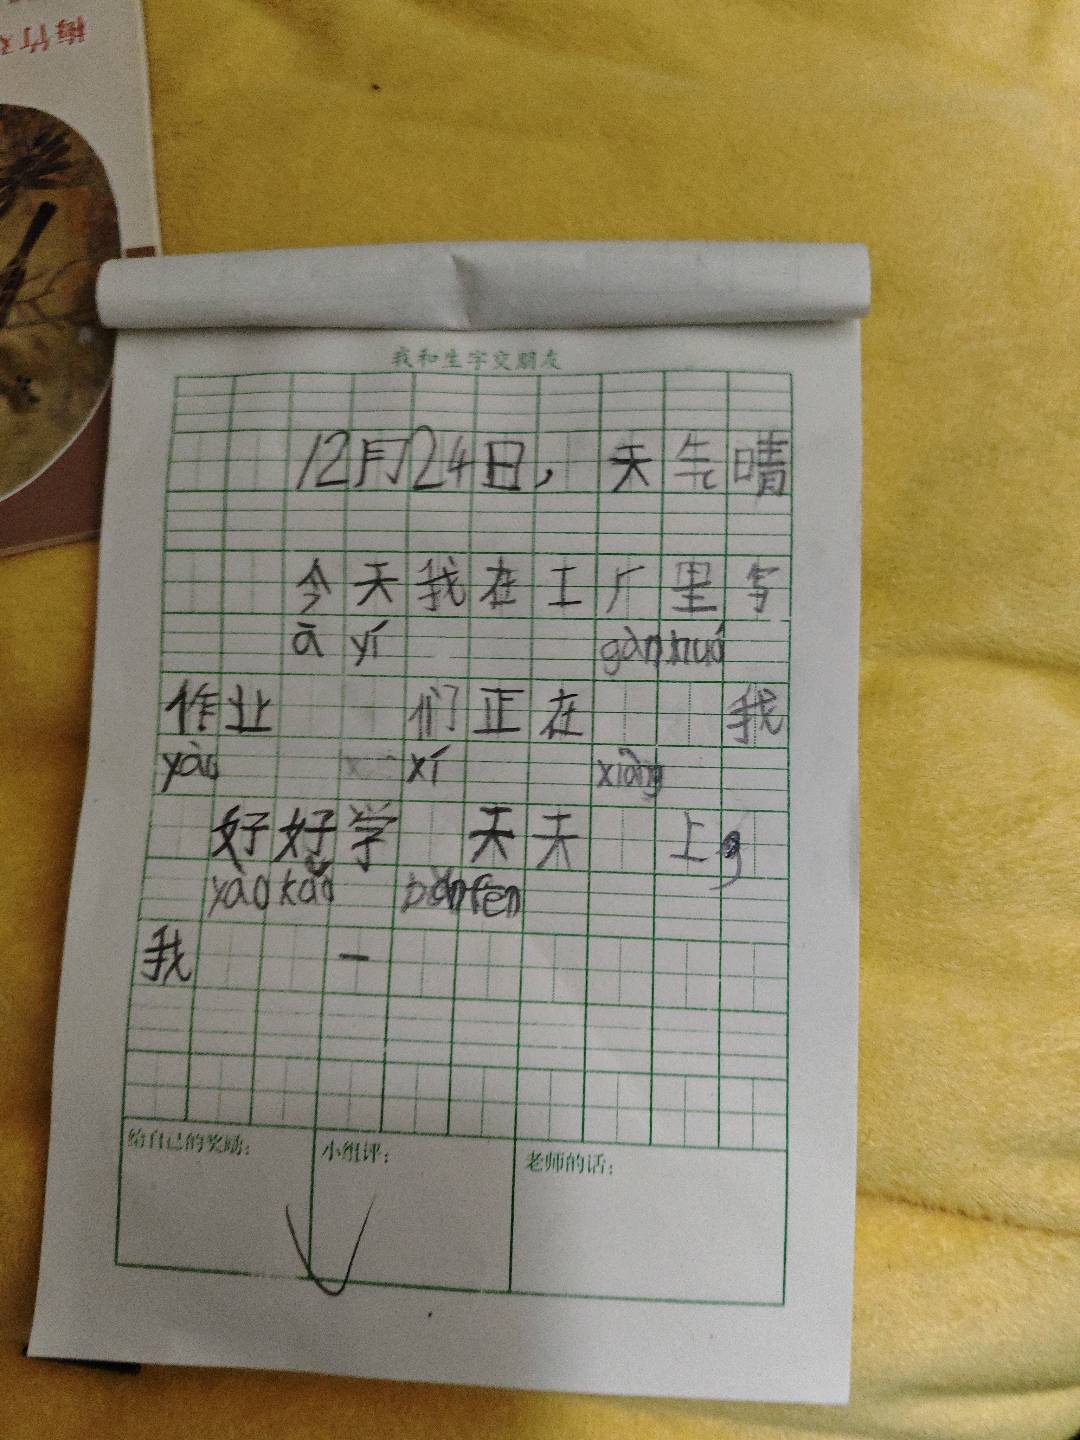 梅竹
我和生字交朋友
12月24日，天气晴
今天我在工厂里写
ā yí gàn huó
作业 们正在 我
yào xí xiàng
好好学 天天 上
yào kǎo bǎn fēn
我 一
给自己的奖励：
小组评：
老师的话：